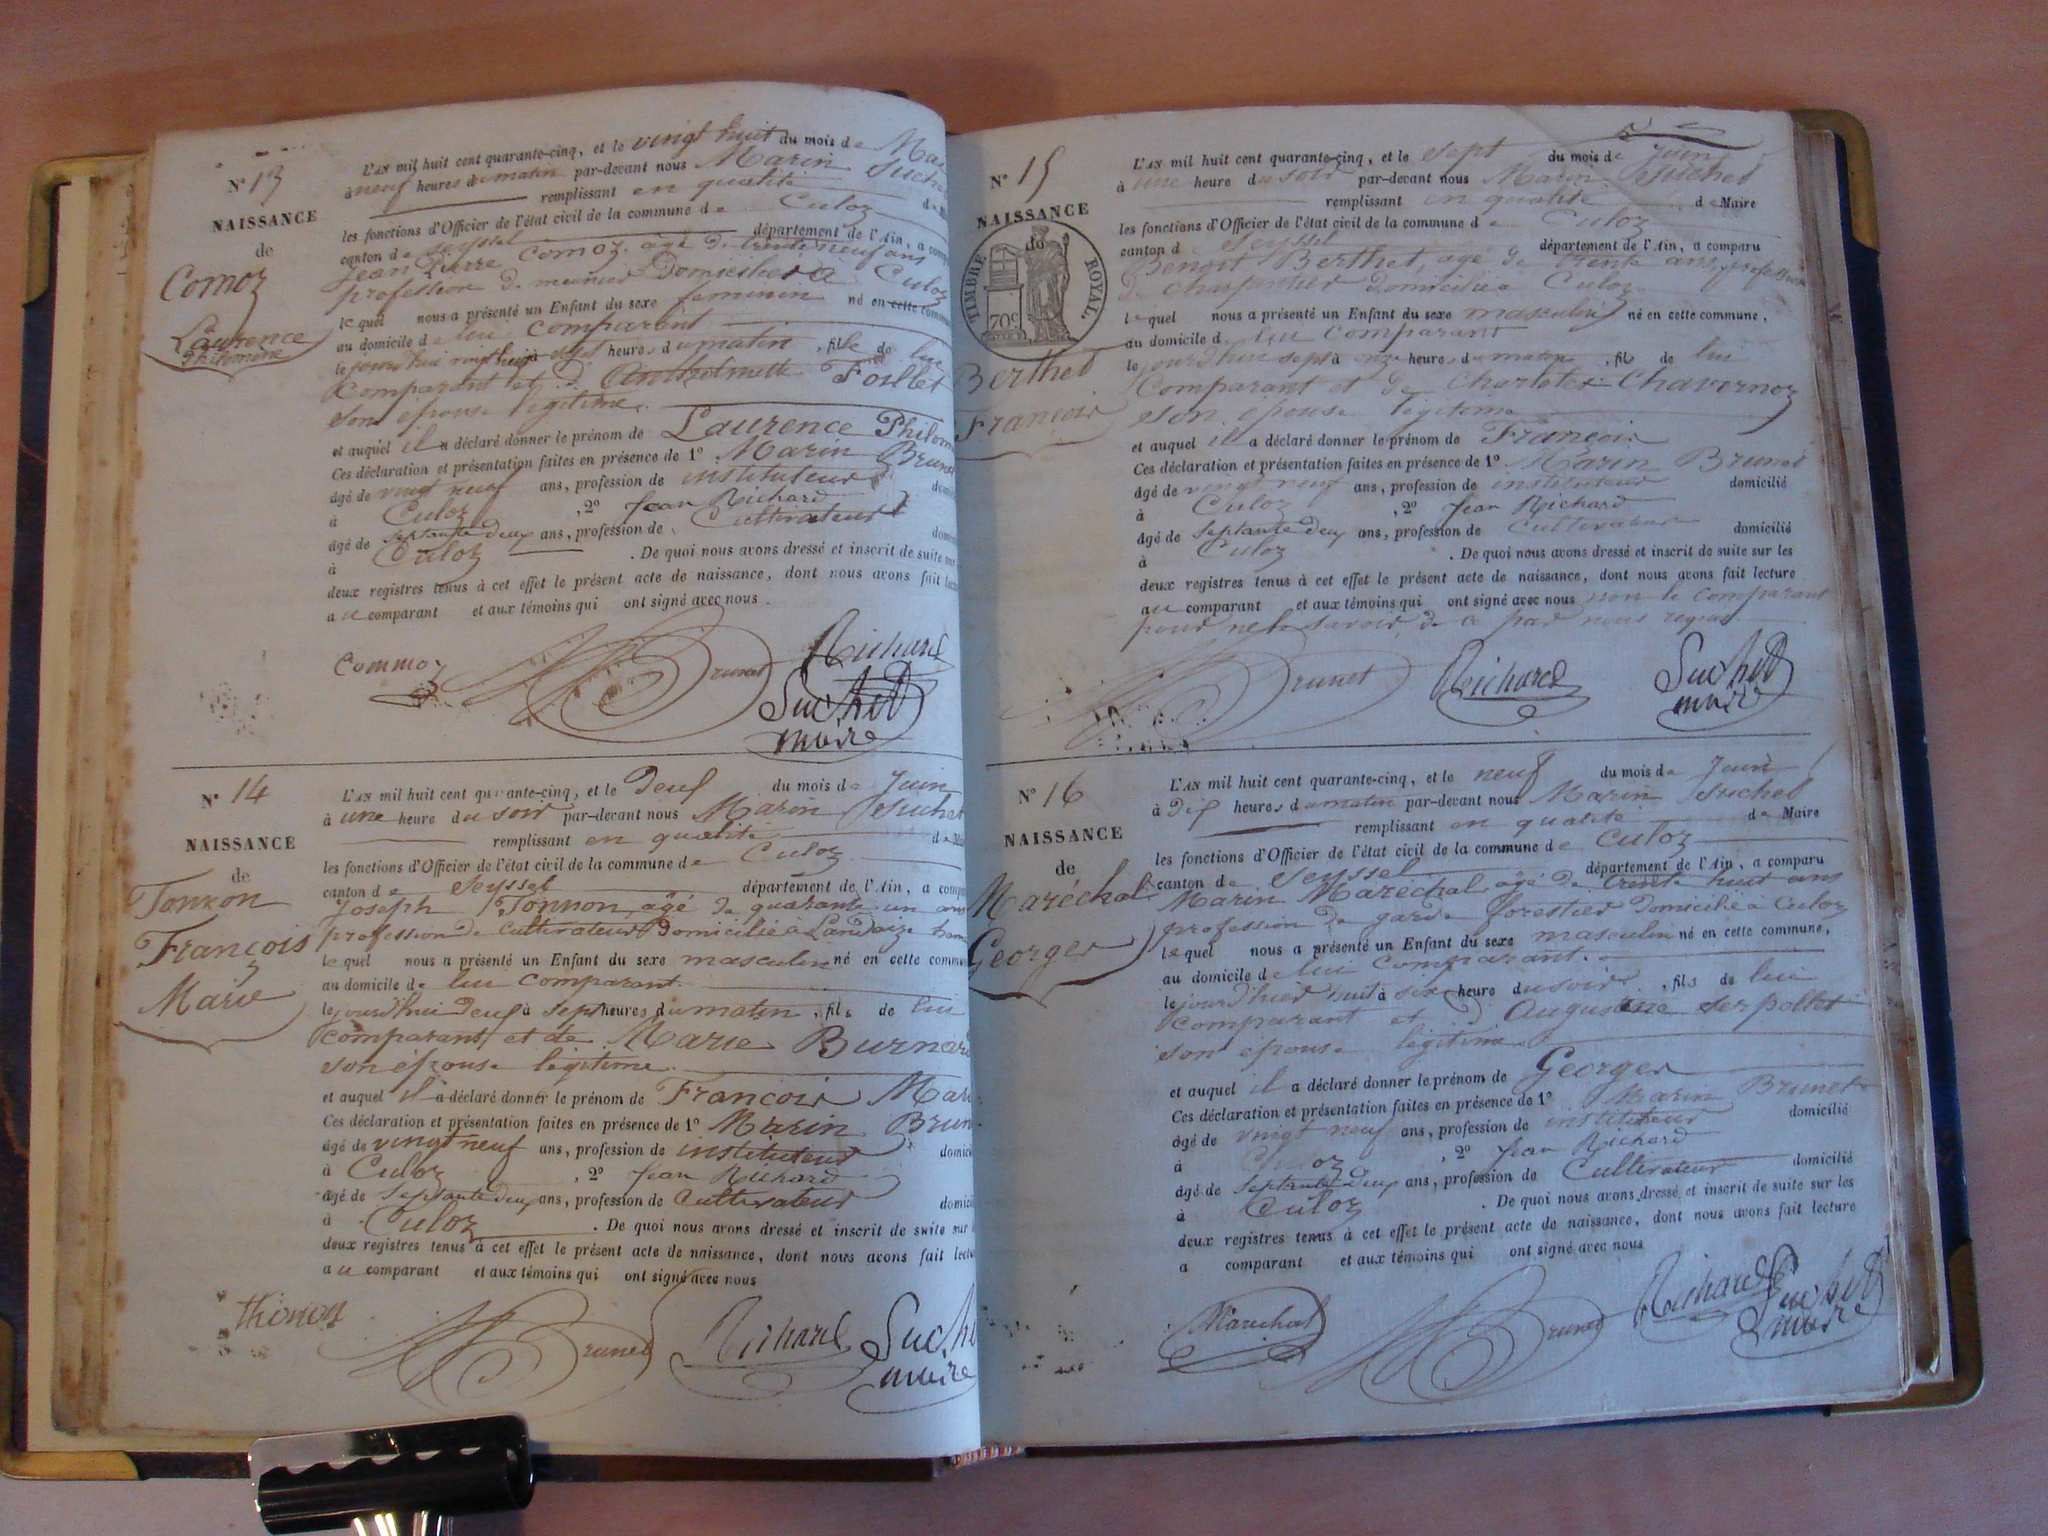 N° 13
NAISSANCE
de
Comoz
Laurence
Philomène
L'AN mil huit cent quarante-cinq, et le vingt huit du mois de Mai
à neuf heures du matin par-devant nous Marin Suchet
remplissant en qualité de Maire
les fonctions d'Officier de l'état civil de la commune de Culoz
canton de Seyssel département de l'Ain, a comp
Jean Pierre Comoz, âgé de trente neuf ans
profession de meunier Domicilié à Culoz
lequel nous a présenté un Enfant du sexe feminin né en cette commune
au domicile de lui comparant
le jourd'hui vingt huit à sept heures du matin, fille de lui
Comparant et d' Anthelmette Foillet
son épouse légitime.
et auquel il a déclaré donner le prénom de Laurence Philom
Ces déclaration et présentation faites en présence de 1° Marin Brunet
âgé de vingt neuf ans, profession de instituteur domi
à Culoz, 2° Jean Richard
âgé de septante deux ans, profession de Cultivateur domi
à Culoz. De quoi nous avons dressé et inscrit de suite sur
deux registres tenus à cet effet le présent acte de naissance, dont nous avons fait lectu
au comparant et aux témoins qui ont signé avec nous.
Commoz Brunet Richard
Suchet
maire
N° 14
NAISSANCE
de
Tonnon
François
Marie
L'AN mil huit cent quarante-cinq, et le Deux du mois de Juin
à une heure du soir par-devant nous Marin Suchet
remplissant en qualité de Mai
les fonctions d'Officier de l'état civil de la commune de Culoz
canton de Seyssel département de l'Ain, a comp
Joseph Tonnon, âgé de quarante un ans
profession de cultivateur Domicilié à Landaize ham
lequel nous a présenté un Enfant du sexe masculin né en cette commun
au domicile de lui comparant.
le jourd'hui Deux à sept heures du matin, fils de lui
comparant et de Marie Burnard
son épouse légitime.
et auquel il a déclaré donner le prénom de François Mari
Ces déclaration et présentation faites en présence de 1° Marin Brun
âgé de vingt neuf ans, profession de instituteur domici
à Culoz, 2° Jean Richard
âgé de septante deux ans, profession de Cultivateur domici
à Culoz. De quoi nous avons dressé et inscrit de suite sur
deux registres tenus à cet effet le présent acte de naissance, dont nous avons fait lectu
au comparant et aux témoins qui ont signé avec nous
thonon Brunet Richard Suche
maire
N° 15
NAISSANCE
de
TIMBRE ROYAL.
70c
Berthet
François
L'AN mil huit cent quarante-cinq, et le sept du mois de Juin
à une heure du soir par-devant nous Marin Suchet
remplissant en qualité de Maire
les fonctions d'Officier de l'état civil de la commune de Culoz
canton d Seyssel département de l'Ain, a comparu
Benoit Berthet, âgé de trente ans, profession
de charpentier domicilié à Culoz
lequel nous a présenté un Enfant du sexe masculin né en cette commune,
au domicile de lui comparant
le jourd'hui sept à onze heures du matin, fils de lui
Comparant et de Charlotte Chavornoz
son épouse légitime
et auquel il a déclaré donner le prénom de François
Ces déclaration et présentation faites en présence de 1° Marin Brunet
âgé de vingt neuf ans, profession de instituteur domicilié
à Culoz, 2° Jean Richard
âgé de septante deux ans, profession de Cultivateur domicilié
à Culoz. De quoi nous avons dressé et inscrit de suite sur les
deux registres tenus à cet effet le présent acte de naissance, dont nous avons fait lecture
au comparant et aux témoins qui ont signé avec nous non le comparant
pour ne le savoir, de ce par nous requis.
Brunet Richard Suchet
maire
N° 16
NAISSANCE
de
Maréchal
Georges
L'AN mil huit cent quarante-cinq, et le neuf du mois de Juin
à Dix heures du matin par-devant nous Marin Suchet
remplissant en qualité de Maire
les fonctions d'Officier de l'état civil de la commune de Culoz
canton de Seyssel département de l'Ain, a comparu
Marin Maréchal, âgé de trente huit ans
profession de garde forestier domicilié à Culoz
lequel nous a présenté un Enfant du sexe masculin né en cette commune,
au domicile de lui comparant.
le jourd'hier huit à six heure du soir, fils de lui
comparant et d' Augustine Serpollet
son épouse légitime.
et auquel il a déclaré donner le prénom de Georges
Ces déclaration et présentation faites en présence de 1° Marin Brunet
âgé de vingt neuf ans, profession de instituteur domicilié
à Culoz, 2° Jean Richard
âgé de septante deux ans, profession de Cultivateur domicilié
à Culoz. De quoi nous avons dressé et inscrit de suite sur les
deux registres tenus à cet effet le présent acte de naissance, dont nous avons fait lecture
a comparant et aux témoins qui ont signé avec nous
Maréchal Brunet Richard Suchet
maire